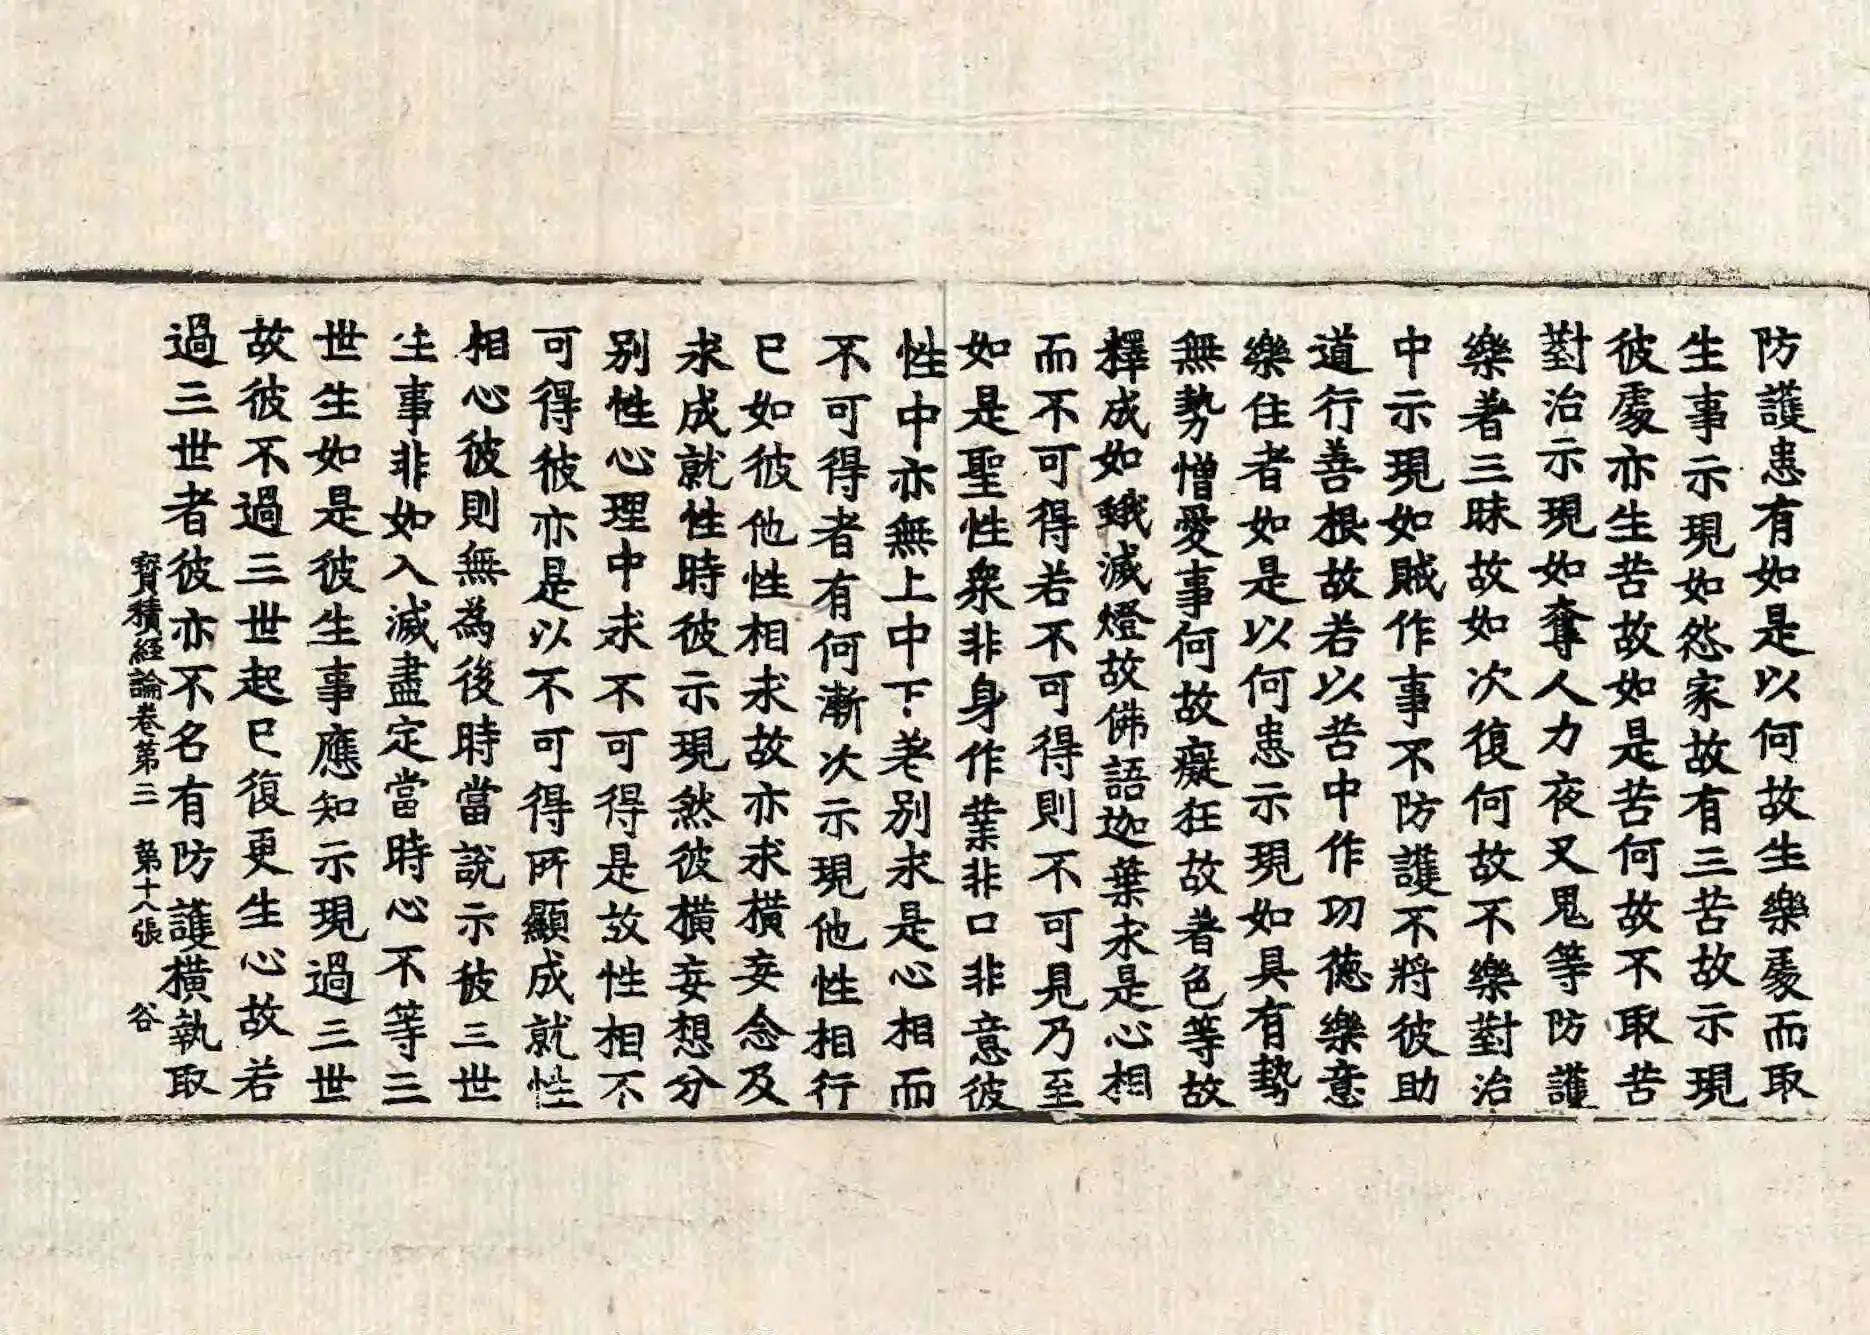 防護患有如是以何故生樂處而取
生事示現如怨家故有三苦故示現
彼處亦生苦故如是苦何故不取苦
對治示現如奪人力夜叉鬼等防護
樂者三昧故如次復何故不樂對治
中示現如賊作事不防護不將彼助
道行善根故若以苦中作功德樂意
樂住者如是以何患示現如具有勢
無勢憎愛事何故癡狂故著色等故
釋成如蛾滅燈故佛語迦葉求是心相
而不可得若不可得則不可見乃至
如是聖性衆非身作業非口非意彼
性中亦無上中下差別求是心相而
不可得者有何漸次示現他性相行
已如彼他性相求故亦求橫妄念及
求成就性時彼示現然彼橫妄想分
別性心理中求不可得是故性相不
可得彼亦是以不可得所顯成就性
相心彼則無為後時當說示彼三世
生事非如入滅盡定當時心不等三
世生如是彼生事應知示現過三世
故彼不過三世起已復更生心故若
過三世者彼亦不名有防護橫執取
寶積經論卷第三 第十八張 谷